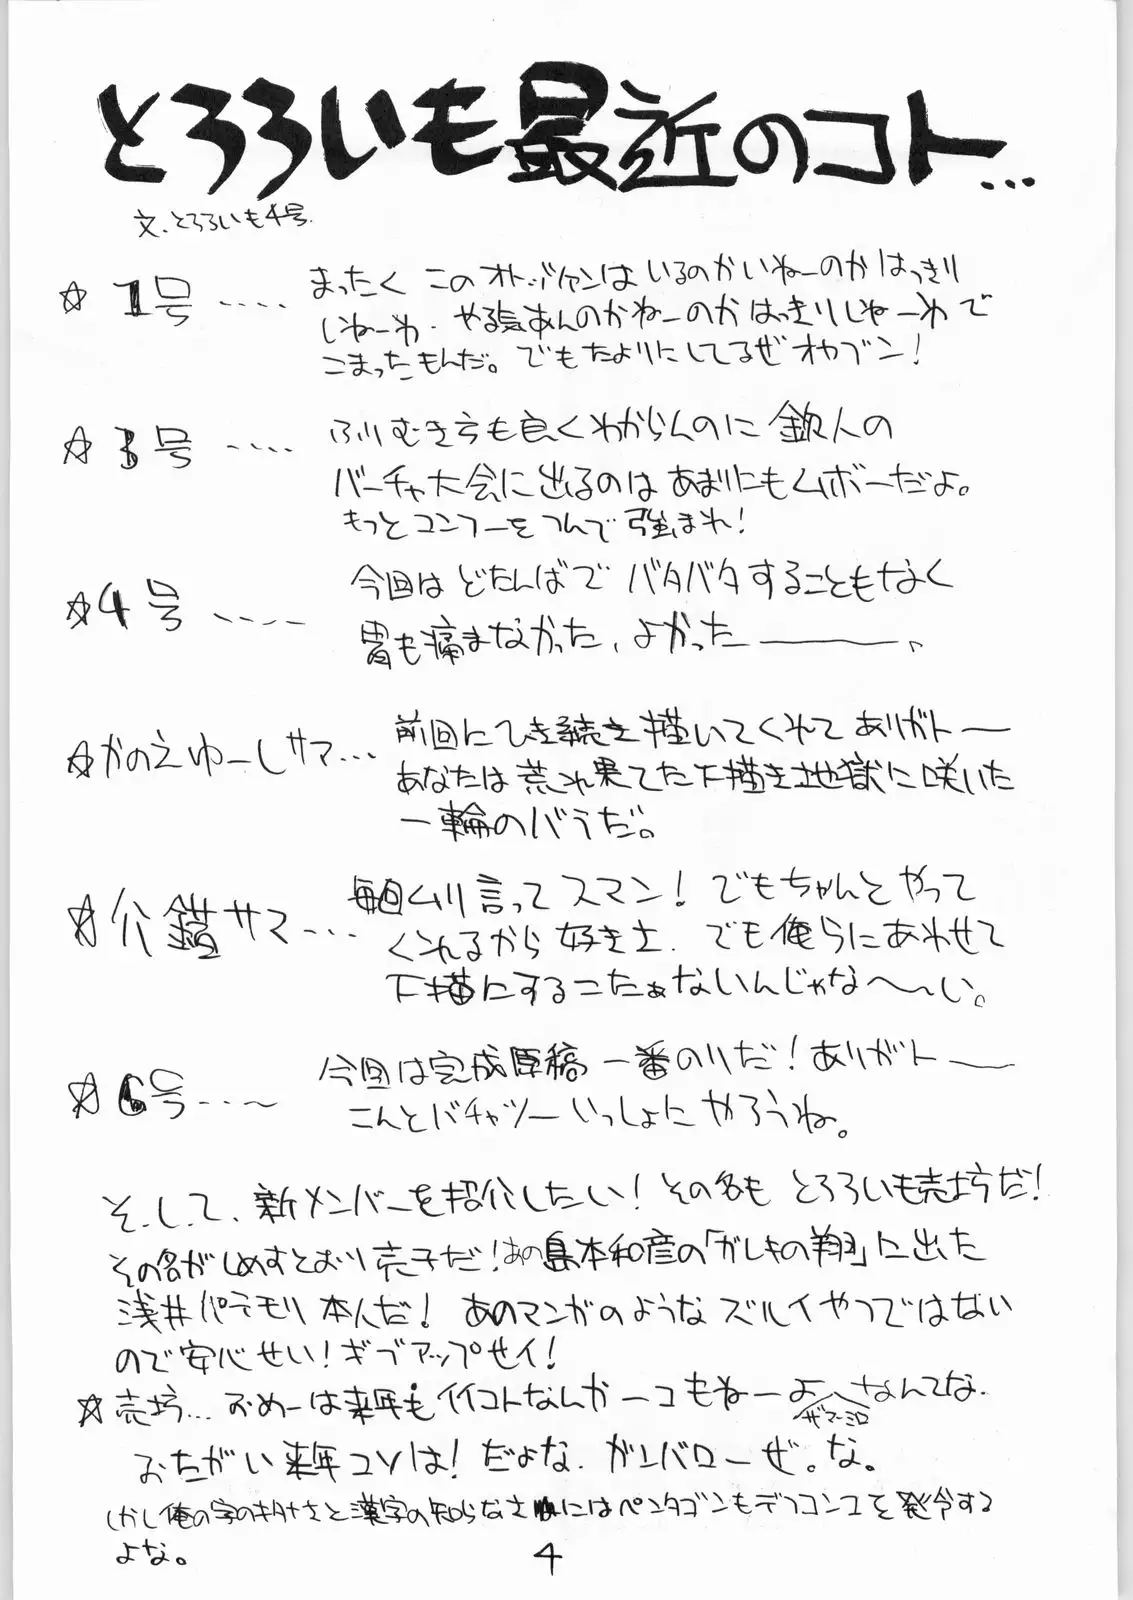 とろろいも最近のコト…
文、とろろいも4号.
☆1号‥‥ まったく このオトッツァンは いるのかいねーのか はっきり
しねーわ. やる気あんのかねーのか はっきりしねーわ で
こまったもんだ。でもたよりにしてるぜ オヤブン！
☆3号‥‥ ふりむき方も良くわからんのに 鉄人の
バーチャ大会に出るのは あまりにもムボーだよ。
もっと コンフーを つんで 強まれ！
☆4号‥‥ 今回は どたんばで バタバタすることもなく
胃も痛まなかった、よかったーーー、
☆かのえゆーしサマ… 前回にひき続き描いてくれて ありガトー
あなたは 荒れ果てた下描き地獄に咲いた
一輪のバラだ。
☆介錯サマ… 毎回ムリ言って スマン！ でもちゃんと やって
くれるから 好きさ. でも俺らにあわせて
下描にするこたぁないんじゃな〜〜い。
☆6号‥‥ 今回は完成原稿 一番のりだ！ ありガトー
こんどバチャツー いっしょに やろうね。
そ.し.て、新メンバーを紹介したい！ その名も とろろいも売坊だ！
その名がしめすとおり 売子だ！あの島本和彦の「ガレキの翔」に出た
浅井パラモリ 本人だ！ あのマンガのような ズルイやつではない
ので安心せい！ギブアップせイ！
☆売坊… おめーは来年も イイコトなんか 一コもねーよ なんてな.
ザマーミロ
おたがい 来年コソは！ だよな. ガンバローぜ。な。
しかし俺の字のキタナさと漢字の知らなさにはペンタゴンもデフコン1を発令する
よな。
4